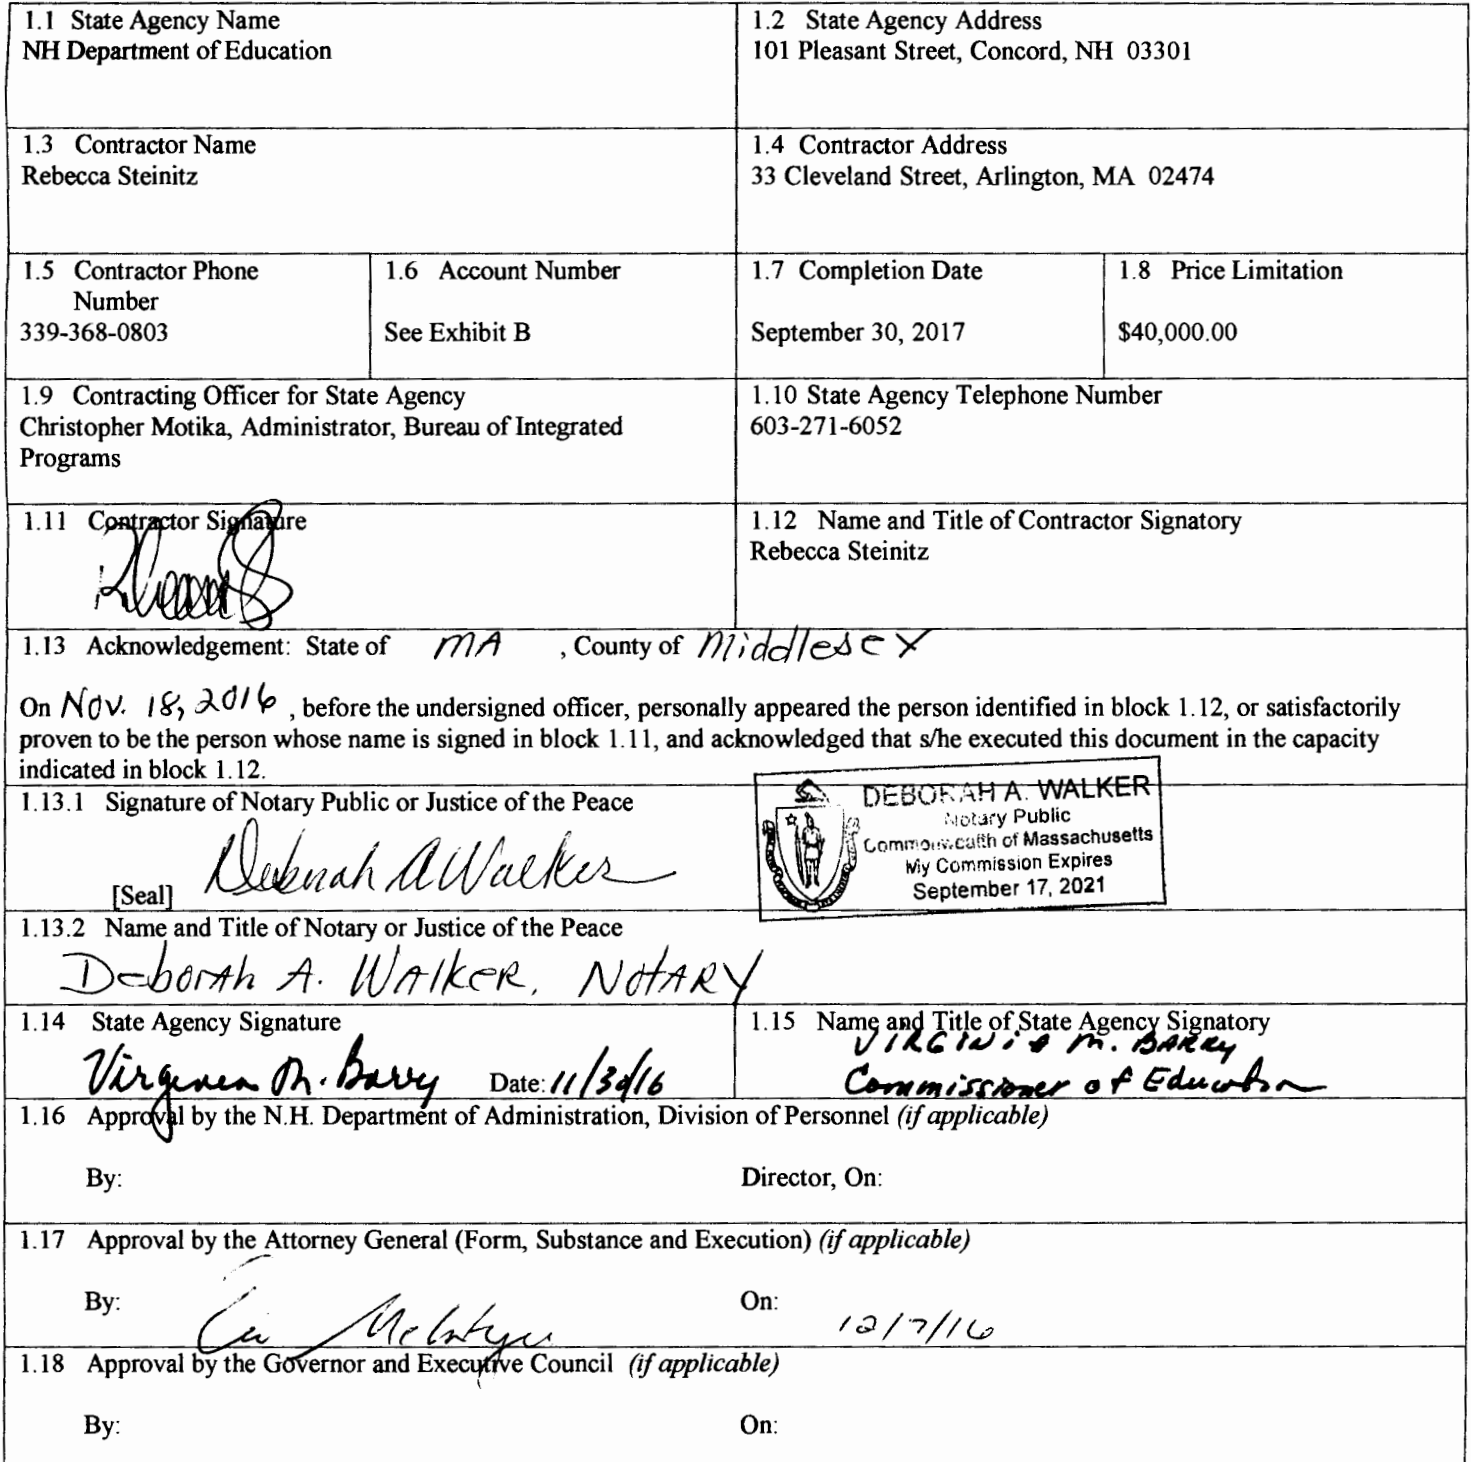 1.1 State Agency Name
NH Department of Education
1.2 State Agency Address
101 Pleasant Street, Concord, NH 03301
1.3 Contractor Name
Rebecca Steinitz
1.4 Contractor Address
33 Cleveland Street, Arlington, MA 02474
1.5 Contractor Phone
Number
339-368-0803
1.6 Account Number
See Exhibit B
1.7 Completion Date
September 30, 2017
1.8 Price Limitation
$40,000.00
1.9 Contracting Officer for State Agency
Christopher Motika, Administrator, Bureau of Integrated
Programs
1.10 State Agency Telephone Number
603-271-6052
1.11 Contractor Signature
1.12 Name and Title of Contractor Signatory
Rebecca Steinitz
1.13 Acknowledgement: State of MA , County of Middlesex
On Nov. 18, 2016 , before the undersigned officer, personally appeared the person identified in block 1.12, or satisfactorily
proven to be the person whose name is signed in block 1.11, and acknowledged that s/he executed this document in the capacity
indicated in block 1.12.
1.13.1 Signature of Notary Public or Justice of the Peace
Deborah A Walker
[Seal]
DEBORAH A. WALKER
Notary Public
Commonwealth of Massachusetts
My Commission Expires
September 17, 2021
1.13.2 Name and Title of Notary or Justice of the Peace
Deborah A. Walker, Notary
1.14 State Agency Signature
Virginia M. Barry Date: 11/30/16
1.15 Name and Title of State Agency Signatory
VIRGINIA M. BARRY
Commissioner of Education
1.16 Approval by the N.H. Department of Administration, Division of Personnel (if applicable)
By: Director, On:
1.17 Approval by the Attorney General (Form, Substance and Execution) (if applicable)
By: McIntyre On: 12/7/16
1.18 Approval by the Governor and Executive Council (if applicable)
By: On: